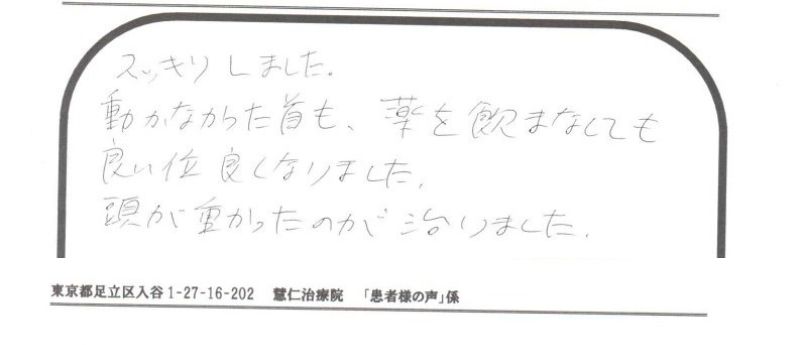 スッキリしました。
動かなかった首も、薬を飲まなくても
良い位良くなりました。
頭が重かったのが治りました。
東京都足立区入谷1-27-16-202 慧仁治療院 「患者様の声」係